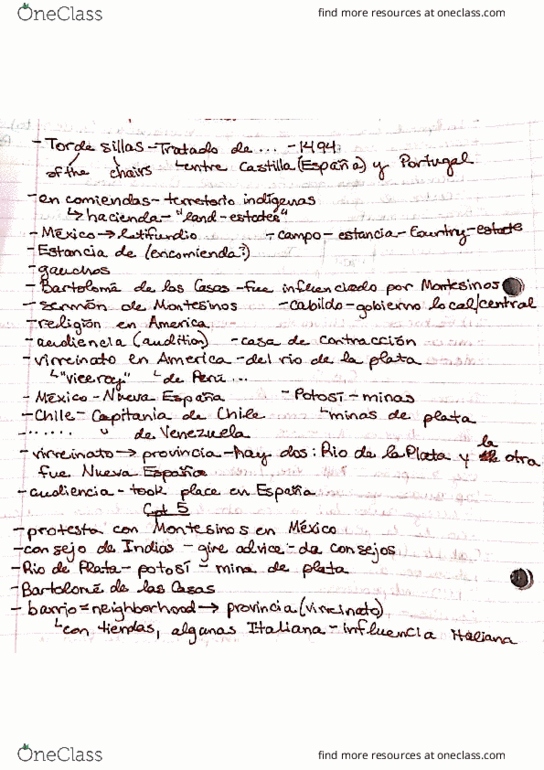 OneClass find more resources at oneclass.com
- Tordesillas - Tratado de ... - 1494
of the chairs ↳ entre Castilla (España) y Portugal
- encomiendas - territorio indígenas
↳ hacienda - "land-estates"
- México → latifundio - campo - estancia - Country - estate
- Estancia de (encomienda?)
- gauchos
- Bartolomé de las Casas - fue influenciado por Montesinos
- sermón de Montesinos - cabildo - gobierno local/central
- religión en America
- audiencia (audition) - casa de contracción
- virreinato en America - del rio de la plata
↳ "viceroy" ↳ de Perú ...
- México - Nueva España - Potosí - minas
- Chile - Capitania de Chile ↳ minas de plata
- ...... " de Venezuela
- virreinato → provincia - hay dos: Rio de la Plata y la otra
fue Nueva España
- audiencia - took place en España
Cpt 5
- protesta con Montesinos en México
- consejo de Indias - give advice - da consejos
- Rio de Plata - potosí - mina de plata
- Bartolomé de las Casas
- barrio = neighborhood → provincia (virreinato)
↳ con tiendas, algunas Italiana - influencia italiana
OneClass find more resources at oneclass.com